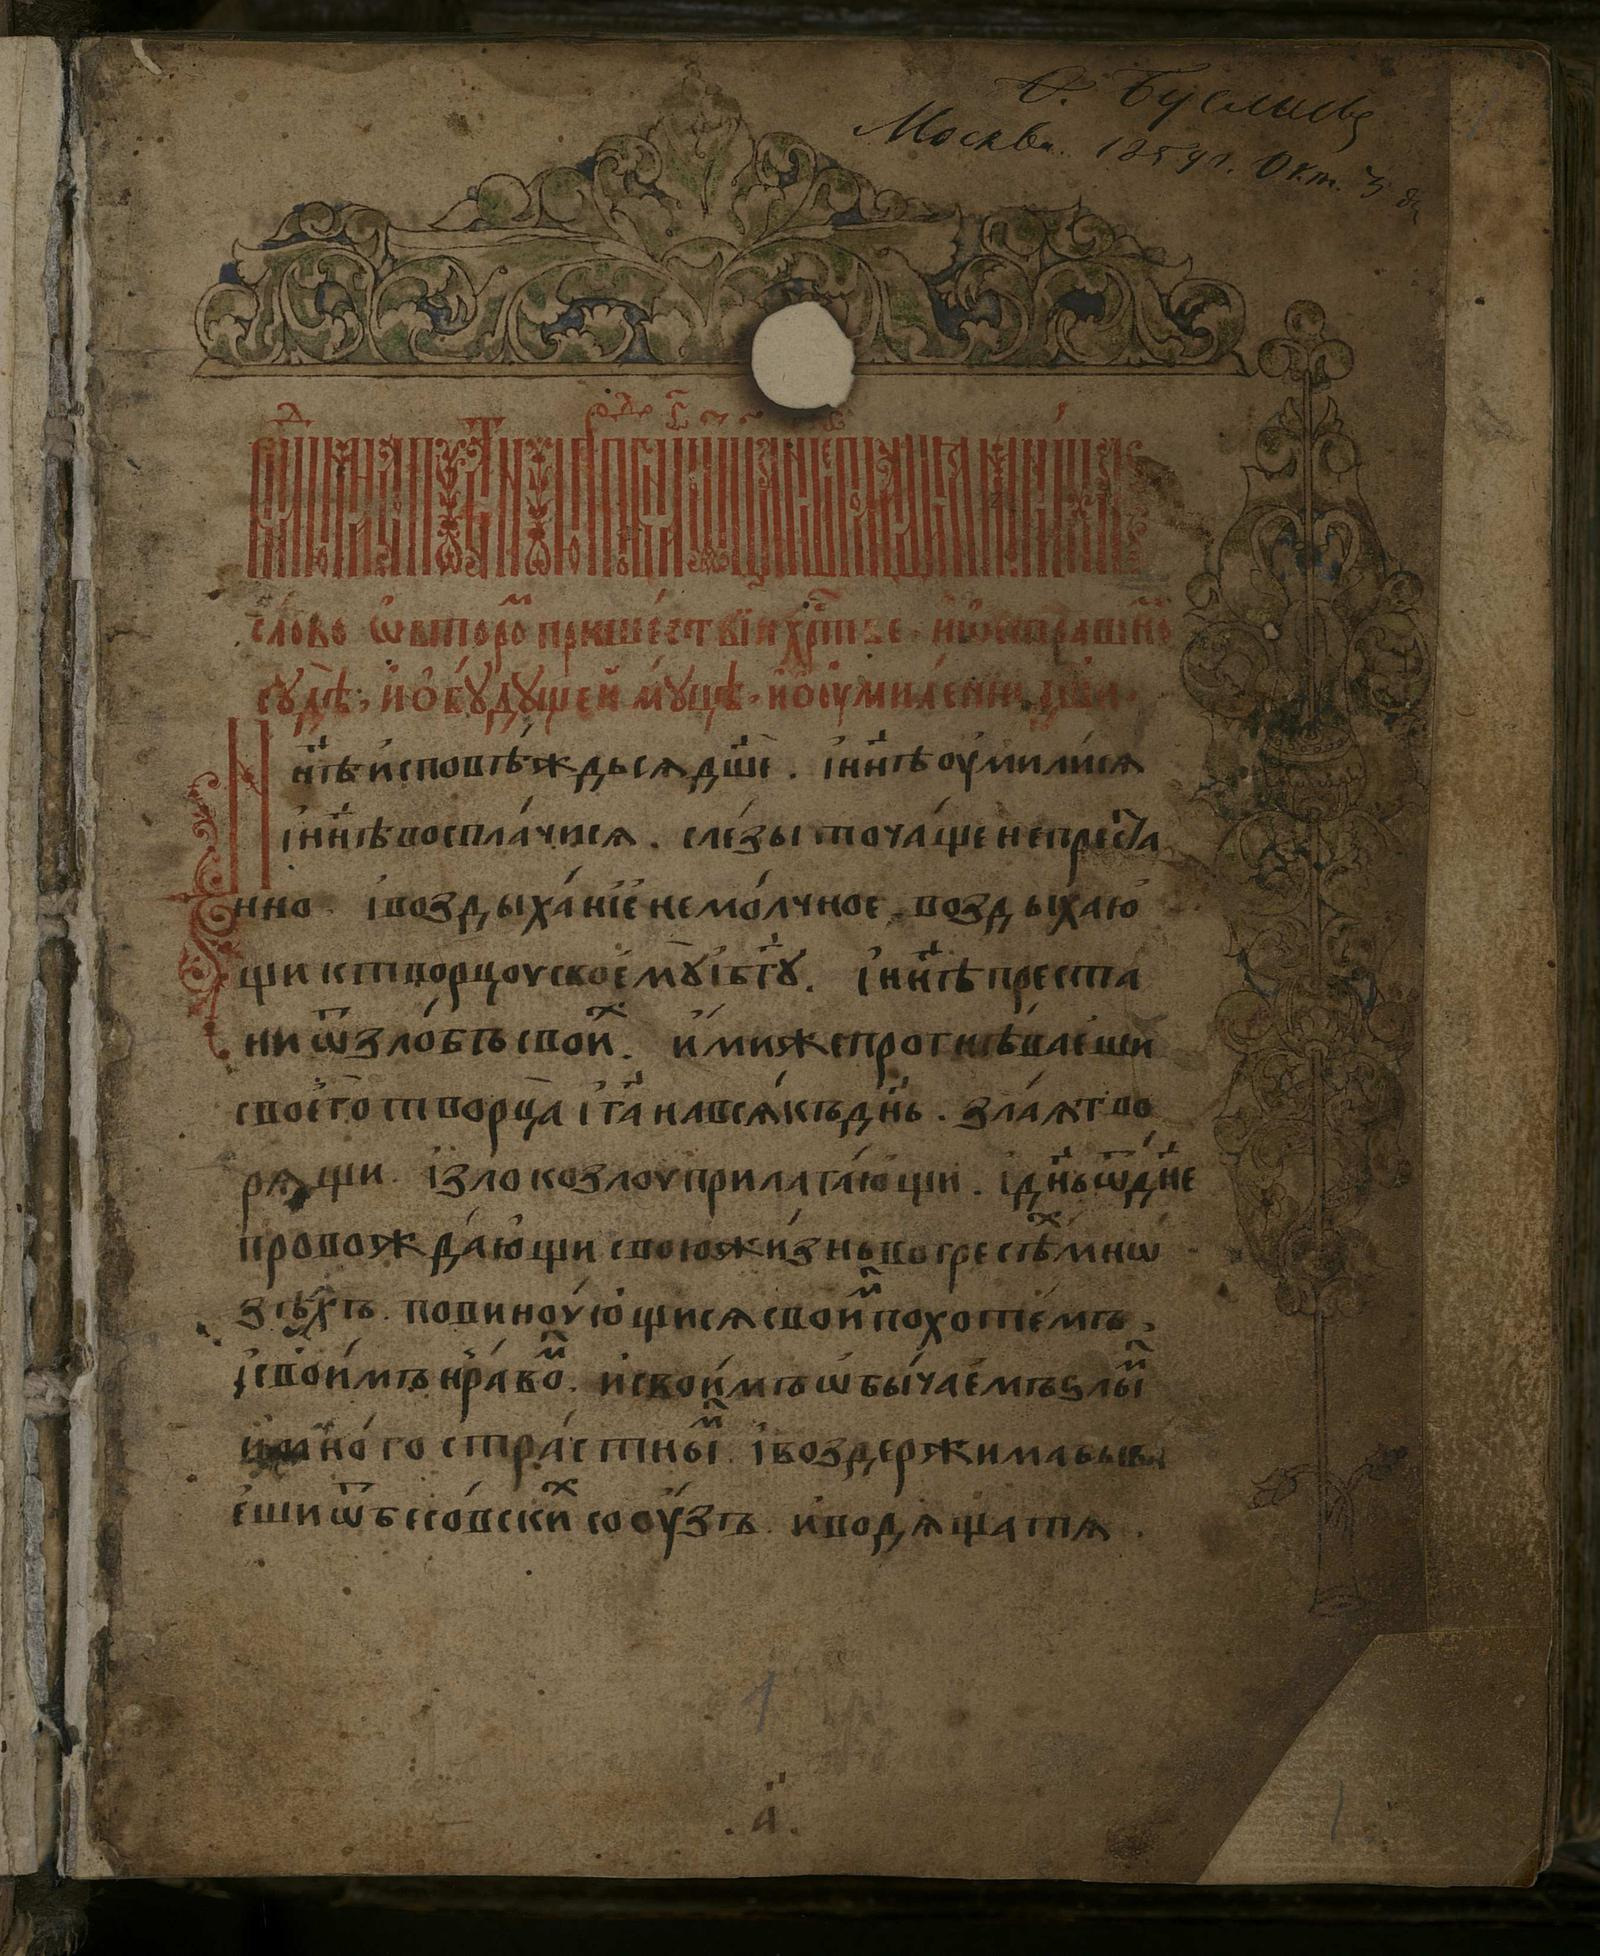 Ѳ. Буслаевъ
Москва. 1859 г. Окт. 3 дн
сло́во ѡ҆ второ м прише́ствїи хр҃то́ве. и҆ ѡ҆ страшно м
судѣ̀, и҆ о҆ бу́дущей му́цѣ. и҆ о҆ умиле́нии дш҃и.
Нн҃ѣ и҆споввѣ́ждься дш҃е. і҆ нн҃ѣ оу҆мили́ся
і҆ нн҃ѣ восплачися. сле́зы точа́ще непреста
нно і҆ воздыха́нїе немо́лчное воздыха́ю
щи к творцоу своемꙋ̀ і҆ бг҃ꙋ. і҆ нн҃ѣ преста
ни ѿ зло́бъ свои х. и҆миже прогнѣ́ваеши
своего̀ творца̀ і҆ гд҃а на вся́къ дн҃ь. зла́я тво
рящи і҆ зло ко злоу прилага́ющи. і҆ дн҃ь ѿ дн҃е
провожда́ющи свою жи́знь во гресѣ х мнѡ
зѣ́хъ повину́ющися свои м похоте́мъ,
і҆ свои́мъ нра́во м. и҆ свои́мъ ѡ҆бы́чаемъ ѕлы м
и҆ мно́гостра́стны м і҆ воздержима быва
еши ѿ бесо́вски х соу́зъ и҆ водяща тя.
1
.а҃.
1